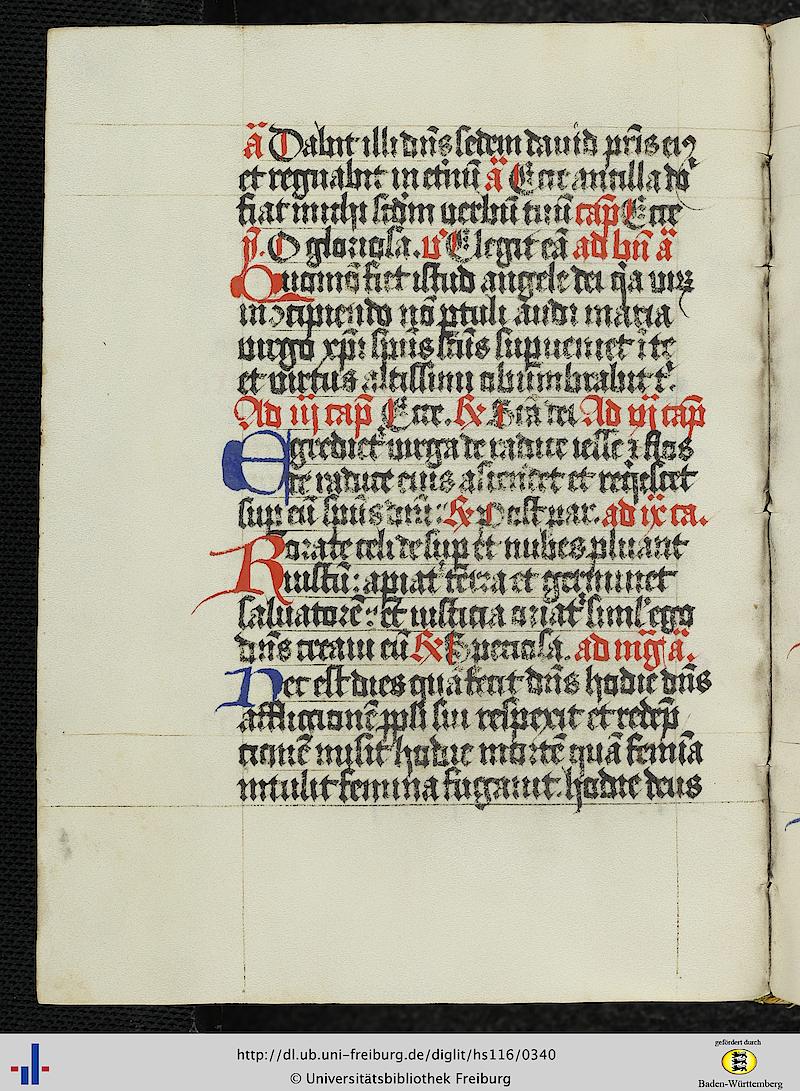 ā Dabit illi dn̄s sedem dauid pr̄is ei9
et regnabit in et̄nū ā Ecce ancilla do
fiat michi scd̄m uerbū tuū cap̄ Ecce
ꝟ. O gloriosa. ꝟ Elegit eā ad bn̄ ā
Quomō fiet istud angele dei q̄a uiꝝ
in ɔcipiendo nō ꝑtuli audi maria
uirgo xp̄i sp̄us sc̄us supueniet ī te
et uirtus altissimi obūmbrabit t'.
Ad iij cap̄ Ecce. ℞ Ad vj cap̄
Egrediet' uirga de radice iesse ⁊ flos
de radice eius ascendet et reqͥescet
sup eū sp̄us dn̄i: ℞ Post par. ad ix ca.
Rorate celi desup et nubes pluant
iustū: apiat' terra et germinet
saluatorē: et iusticia oriat' siml' ego
dn̄s creaui eū ℞ Speciosa. ad mḡ ā.
Hec est dies quā fecit dn̄s hodie dn̄s
afflictionē ppl̄i sui respexit et redēp
cionē misit hodie mortē quā femīa
intulit femina fugauit. hodie deus
http://dl.ub.uni-freiburg.de/diglit/hs116/0340
© Universitätsbibliothek Freiburg
gefördert durch
Baden-Württemberg